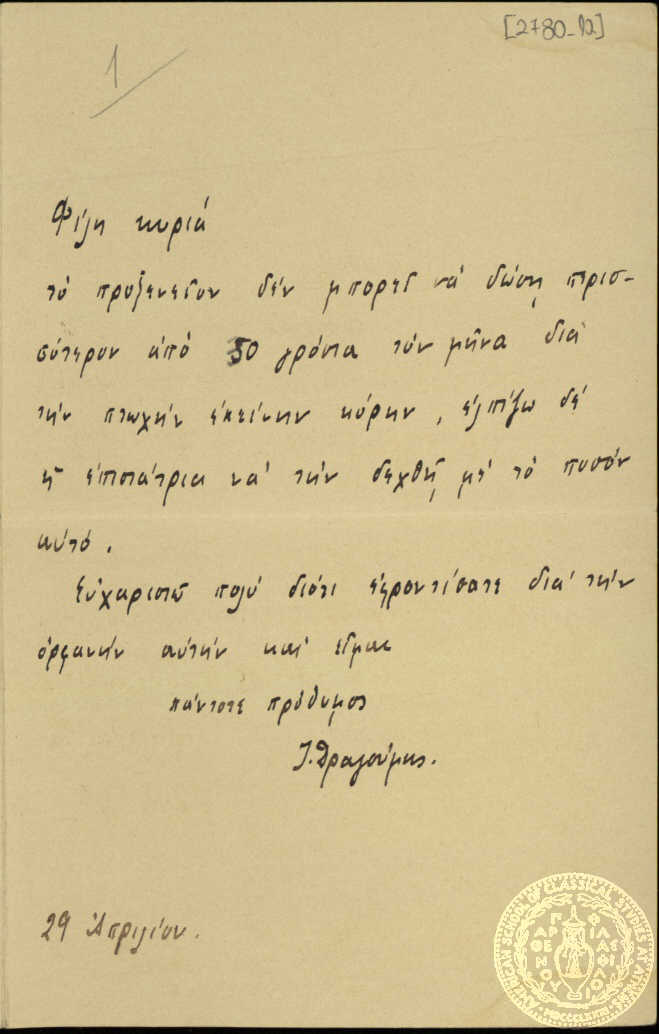 [2780-12]
1
Φίλη κυριά
τὸ προξενεῖον δὲν μπορεῖ νὰ δώσῃ περισ-
σότερον ἀπὸ 50 γρόσια τὸν μῆνα διὰ
τὴν πτωχὴν ἐκείνην κόρην, ἐλπίζω δὲ
ἡ ἐπιστάτρια νὰ τὴν δεχθῇ μὲ τὸ ποσὸν
αὐτό.
Εὐχαριστῶ πολὺ διότι ἐφροντίσατε διὰ τὴν
ὀρφανὴν αὐτὴν καὶ εἶμαι
πάντοτε πρόθυμος
Ἴ. Δραγούμης.
29 Ἀπριλίου.
AMERICAN SCHOOL OF CLASSICAL STUDIES AT ATHENS
ΠΑΡΘΕΝΟΥ ΦΙΛΑΣ ΦΙΛΟΙ
MDCCCLXXXI